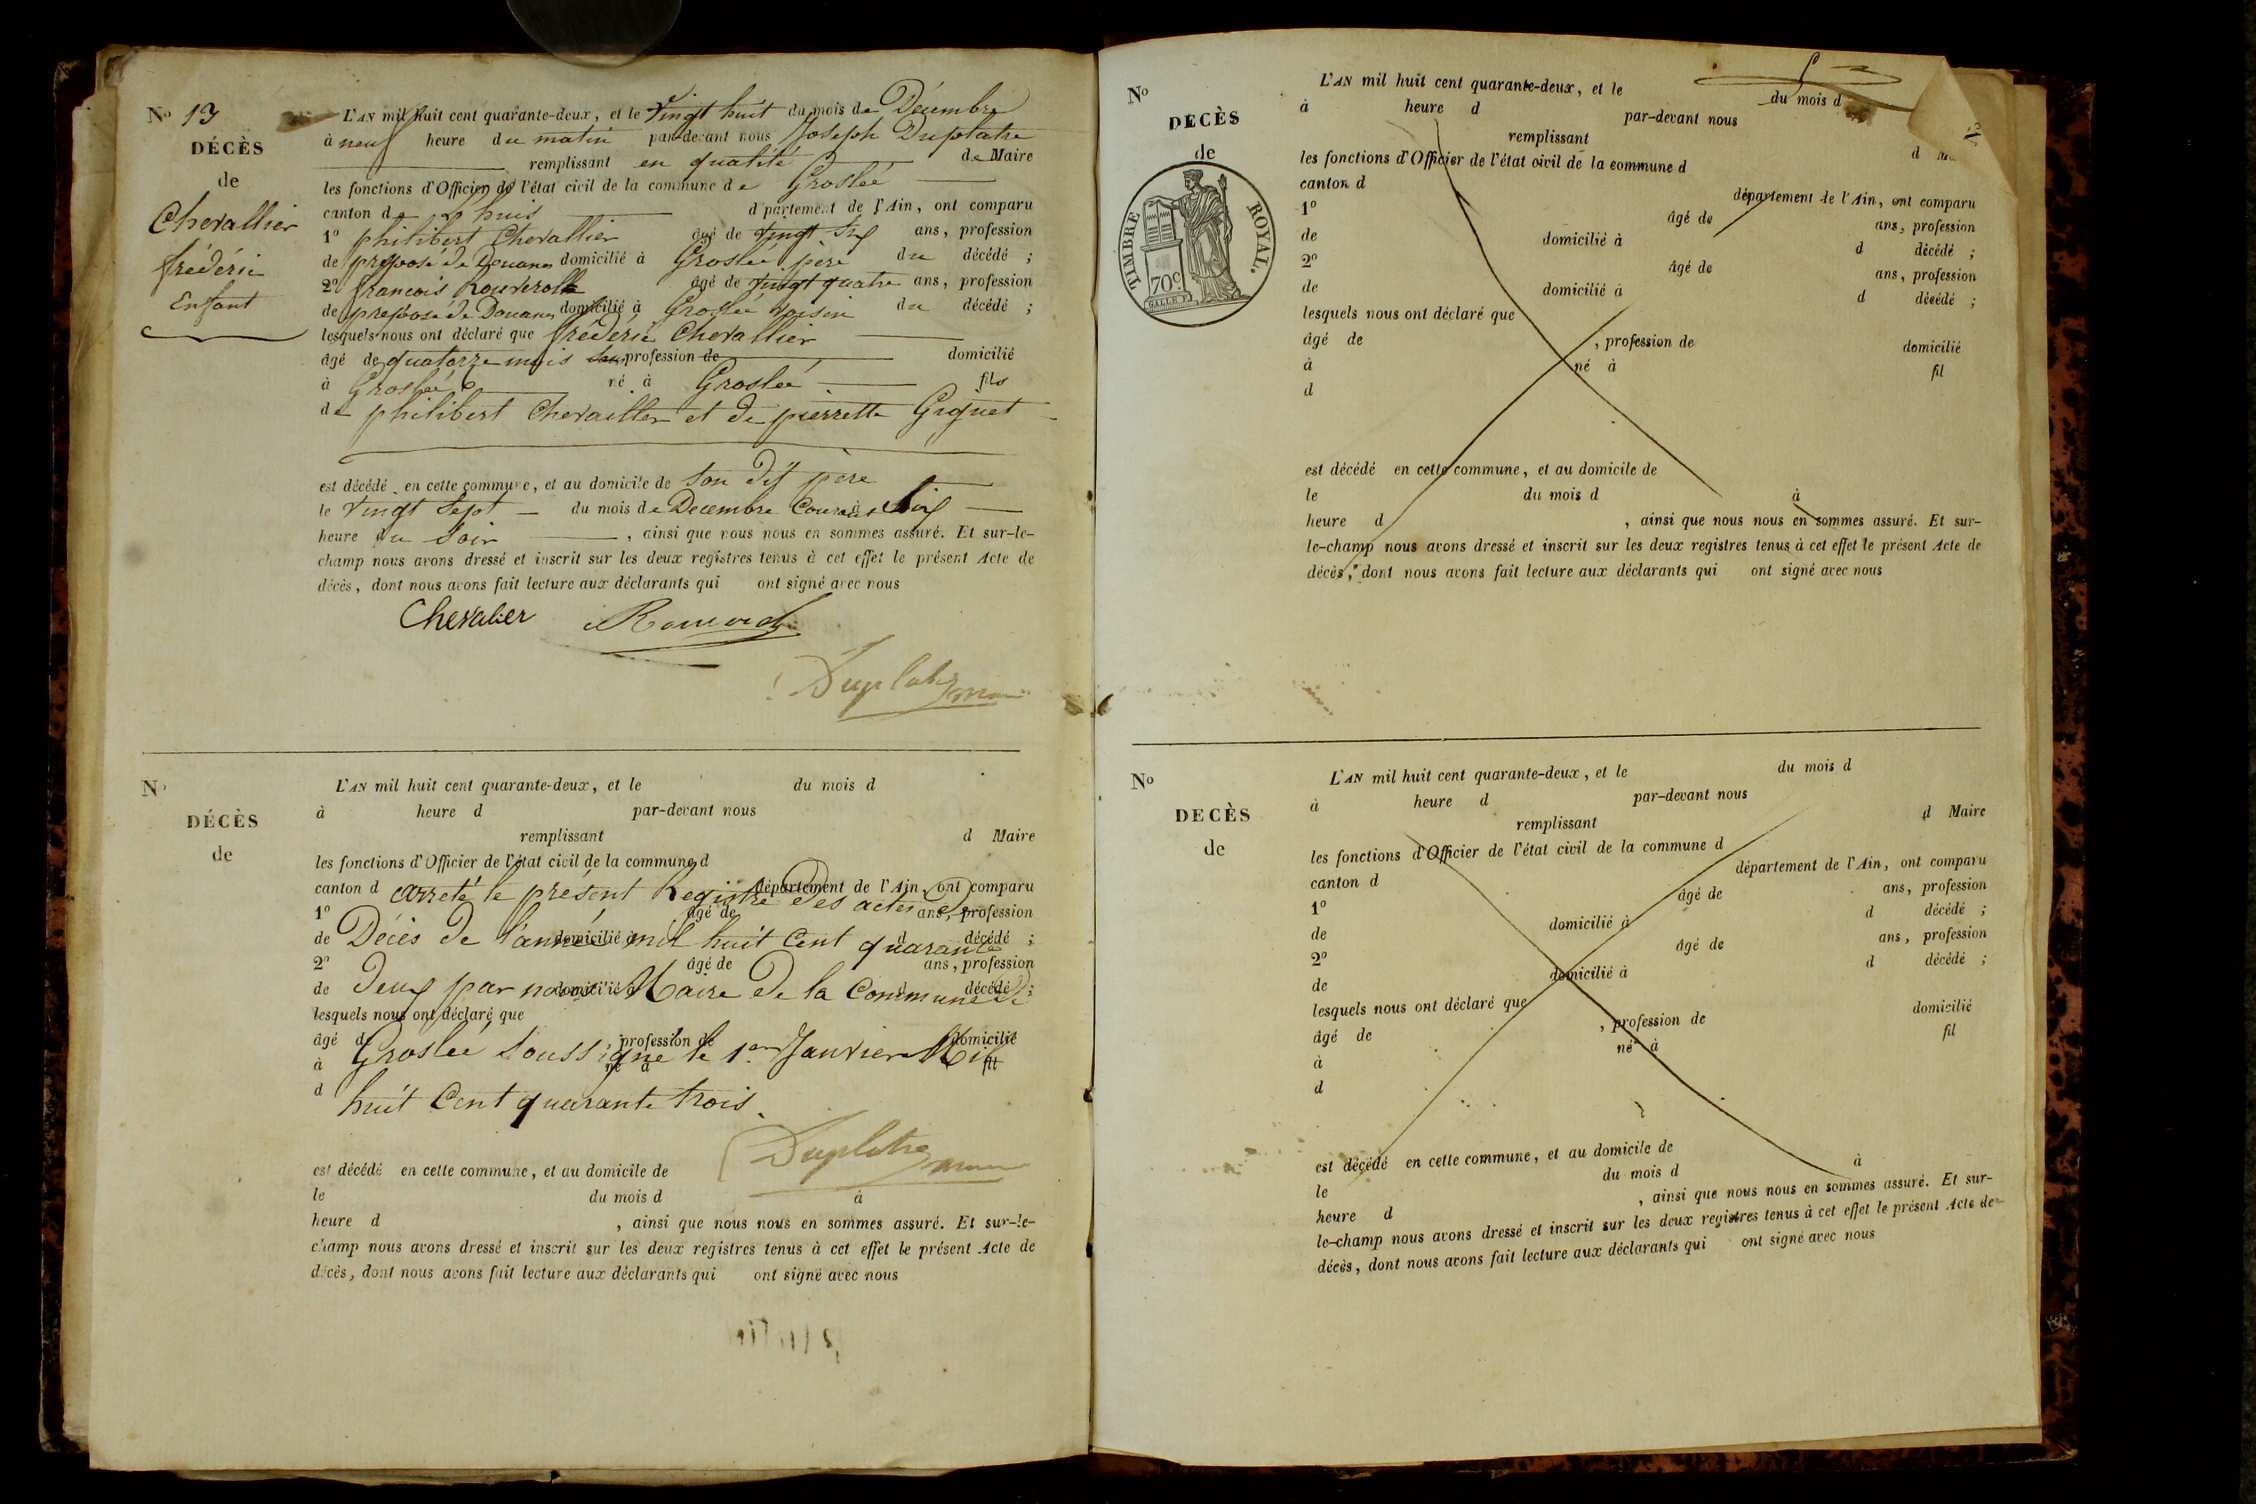 No 13
DÉCÈS
de
Chevallier
fréderic
Enfant
L'AN mil huit cent quarante-deux, et le vingt huit du mois de Décembre
à neuf heure du matin par-devant nous Joseph Duplatre
remplissant en qualité de Maire
les fonctions d'Officier de l'état civil de la commune de Groslée
canton de Lhuis département de l'Ain, ont comparu
1º philibert Chevallier âgé de vingt six ans, profession
de preposé de Douanes domicilié à Groslee père du décédé ;
2º francois âgé de vingt quatre ans, profession
de preposé de Douanes domicilié à Groslée voisin du décédé ;
lesquels nous ont déclaré que fréderic Chevallier
âgé de quatorze mois profession de domicilié
à Groslée né à Groslée fils
de philibert Chevailler et de pierrette Guguet
est décédé en cette commune, et au domicile de son dit père
le vingt Sept du mois de Decembre Courant à Six
heure du Soir , ainsi que nous nous en sommes assuré. Et sur-le-
champ nous avons dressé et inscrit sur les deux registres tenus à cet effet le présent Acte de
décès, dont nous avons fait lecture aux déclarants qui ont signé avec nous
Chevalier
Duplatre maire
No
DÉCÈS
de
L'AN mil huit cent quarante-deux, et le du mois d
à heure d par-devant nous
remplissant d Maire
les fonctions d'Officier de l'état civil de la commune d
canton d département de l'Ain, ont comparu
arreté le présent Registre Des actes De
1º âgé de ans, profession
de domicilié à d décédé ;
Décés de l'année mil huit Cent quarante
2º âgé de ans, profession
de domicilié à d décédé ;
Deux par nous Maire De la Commune de
lesquels nous ont déclaré que
âgé d profession de domicilié
Groslée Soussigné le 1er Janvier Mil
à né à fil
d
huit Cent quarante trois.
Duplatre maire
est décédé en cette commune, et au domicile de
le du mois d à
heure d , ainsi que nous nous en sommes assuré. Et sur-le-
champ nous avons dressé et inscrit sur les deux registres tenus à cet effet le présent Acte de
décès, dont nous avons fait lecture aux déclarants qui ont signé avec nous
No
DECÈS
de
TIMBRE ROYAL.
70c
L'AN mil huit cent quarante-deux, et le du mois d
à heure d par-devant nous
remplissant d
les fonctions d'Officier de l'état civil de la commune d
canton d département de l'Ain, ont comparu
1º âgé de ans, profession
de domicilié à d décédé ;
2º âgé de ans, profession
de domicilié à d décédé ;
lesquels nous ont déclaré que
âgé de , profession de domicilié
à né à fil
d
est décédé en cette commune, et au domicile de
le du mois d à
heure d , ainsi que nous nous en sommes assuré. Et sur-
le-champ nous avons dressé et inscrit sur les deux registres tenus à cet effet le présent Acte de
décès, dont nous avons fait lecture aux déclarants qui ont signé avec nous
No
DECÈS
de
L'AN mil huit cent quarante-deux, et le du mois d
à heure d par-devant nous
remplissant d Maire
les fonctions d'Officier de l'état civil de la commune d
canton d département de l'Ain, ont comparu
1º âgé de ans, profession
de domicilié à d décédé ;
2º âgé de ans, profession
de domicilié à d décédé ;
lesquels nous ont déclaré que
âgé de , profession de domicilié
à né à fil
d
est décédé en cette commune, et au domicile de
le du mois d à
heure d , ainsi que nous nous en sommes assuré. Et sur-
le-champ nous avons dressé et inscrit sur les deux registres tenus à cet effet le présent Acte de
décès, dont nous avons fait lecture aux déclarants qui ont signé avec nous